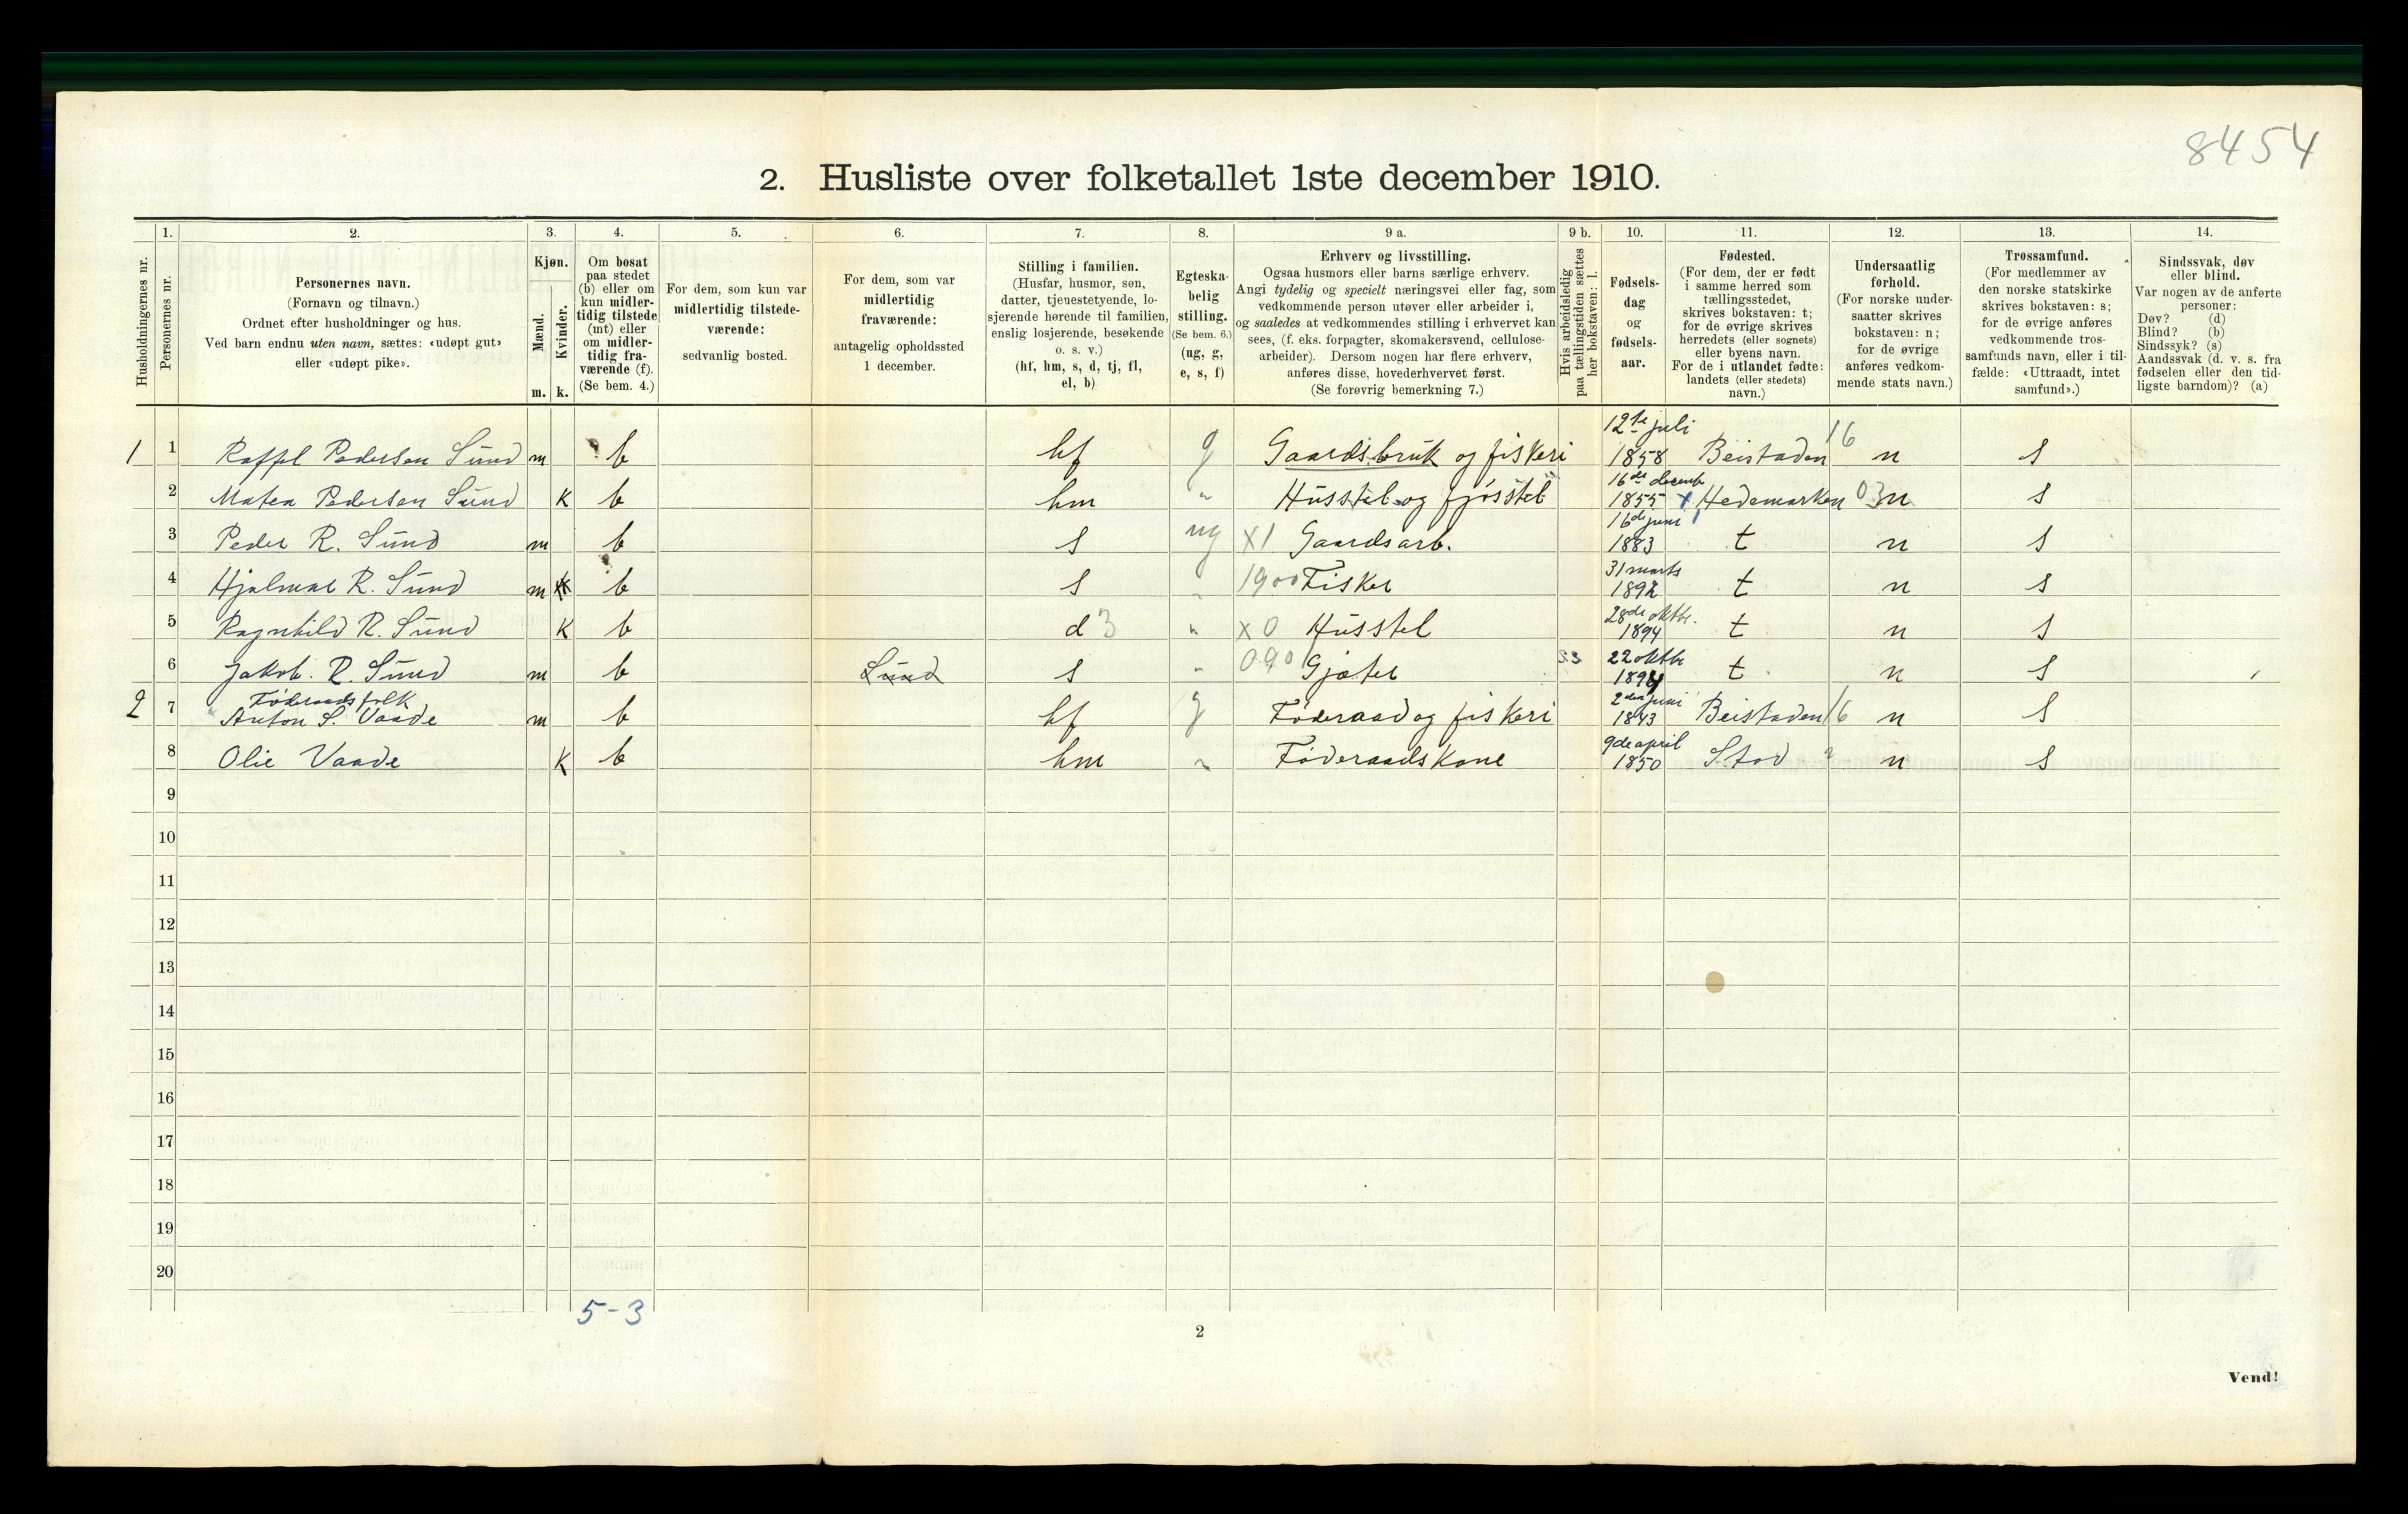 8454
2. Husliste over folketallet 1ste december 1910.
Husholdningernes nr.
1.
Personernes nr.
2.
Personernes navn.
(Fornavn og tilnavn.)
Ordnet efter husholdninger og hus.
Ved barn endnu uten navn, sættes: «udøpt gut»
eller «udøpt pike».
3.
Kjøn.
Mænd.
Kvinder.
m. k.
4.
Om bosat
paa stedet
(b) eller om
kun midler-
tidig tilstede
(mt) eller
om midler-
tidig fra-
værende (f).
(Se bem. 4.)
5.
For dem, som kun var
midlertidig tilstede-
værende:
sedvanlig bosted.
6.
For dem, som var
midlertidig
fraværende:
antagelig opholdssted
1 december.
7.
Stilling i familien.
(Husfar, husmor, søn,
datter, tjenestetyende, lo-
sjerende hørende til familien,
enslig losjerende, besøkende
o. s. v.)
(hf, hm, s, d, tj, fl,
el, b)
8.
Egteska-
belig
stilling.
(Se bem. 6.)
(ug, g,
e, s, f)
9 a.
Erhverv og livsstilling.
Ogsaa husmors eller barns særlige erhverv.
Angi tydelig og specielt næringsvei eller fag, som
vedkommende person utøver eller arbeider i,
og saaledes at vedkommendes stilling i erhvervet kan
sees, (f. eks. forpagter, skomakersvend, cellulose-
arbeider). Dersom nogen har flere erhverv,
anføres disse, hovederhvervet først.
(Se forøvrig bemerkning 7.)
9 b.
Hvis arbeidsledig
paa tællingstiden sættes
her bokstaven: l.
10.
Fødsels-
dag
og
fødsels-
aar.
11.
Fødested.
(For dem, der er født
i samme herred som
tællingsstedet,
skrives bokstaven: t;
for de øvrige skrives
herredets (eller sognets)
eller byens navn.
For de i utlandet fødte:
landets (eller stedets)
navn.)
12.
Undersaatlig
forhold.
(For norske under-
saatter skrives
bokstaven: n;
for de øvrige
anføres vedkom-
mende stats navn.)
13.
Trossamfund.
(For medlemmer av
den norske statskirke
skrives bokstaven: s;
for de øvrige anføres
vedkommende tros-
samfunds navn, eller i til-
fælde: «Uttraadt, intet
samfund».)
14.
Sindssvak, døv
eller blind.
Var nogen av de anførte
personer:
Døv? (d)
Blind? (b)
Sindssyk? (s)
Aandssvak (d. v. s. fra
fødselen eller den tid-
ligste barndom)? (a)
1 1 Raffel Pedersen Sund m b hf g Gaardsbruk og fiskeri 12te juli 1858 Beistaden 16 n s
2 Matea Pedersen Sund k b hm " Husstel og fjøsstel 16de decemb 1855 x Hedemarken 03 n s
3 Peder R. Sund m b s ug X1 Gaardsarb. 16de juni 1883 t n s
4 Hjalmar R. Sund m k b s " 1900 Fisker 31 marts 1892 t n s
5 Ragnhild R. Sund k b d 3 " X0 Husstel 28de oktbr. 1894 t n s
6 Jakob. R. Sund m b Sund s " 090 Gjæter 22 oktbr 1898 t n s
2 7 Føderaadsfolk
Anton S. Vaade m b hf g Føderaad og fiskeri 2den juni 1843 Beistaden 16 n s
8 Olie Vaade k b hm " Føderaadskone 9de april 1850 Stod n s
9
10
11
12
13
14
15
16
17
18
19
20
5-3
2
Vend!